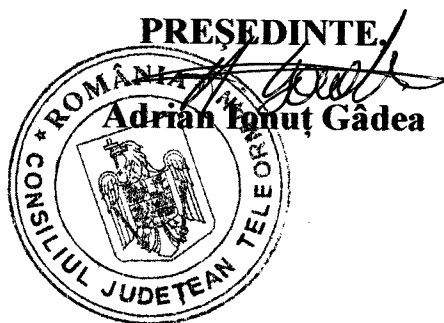 PREŞEDINTE,
Adrian Ionuţ Gâdea
* ROMÂNIA *
CONSILIUL JUDEŢEAN TELEORMAN